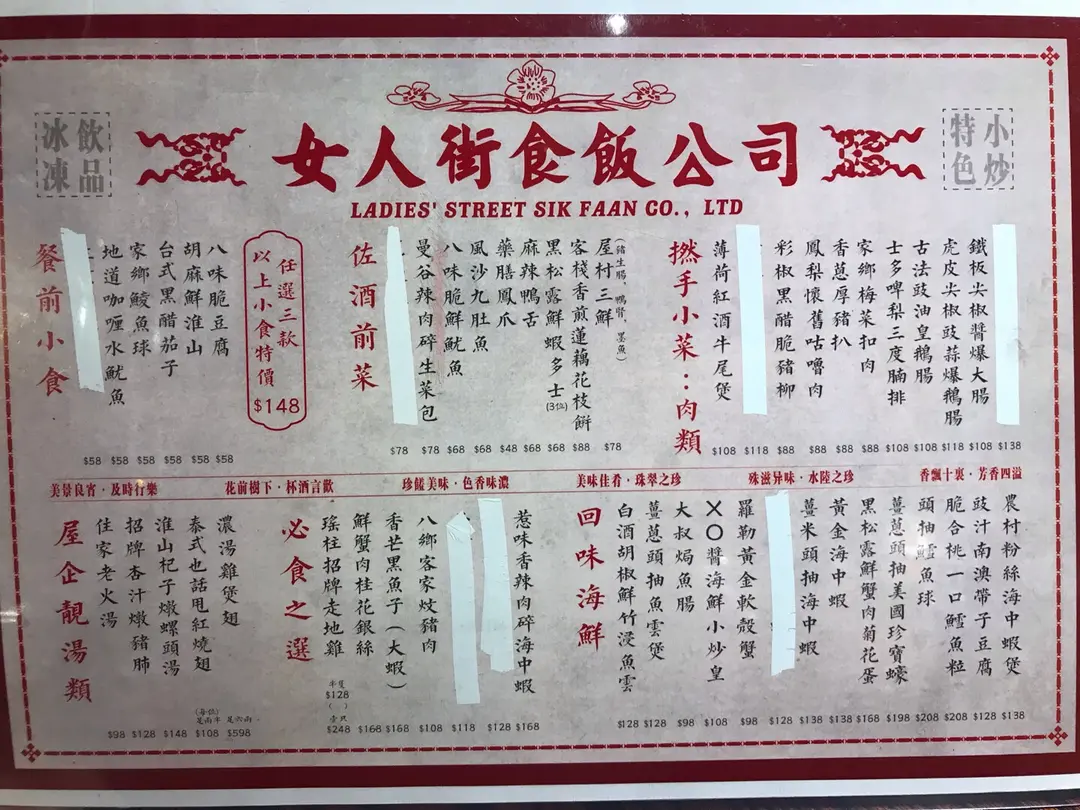 冰凍飲品
女人街食飯公司
特色小炒
LADIES' STREET SIK FAAN CO., LTD
餐前小食
地道咖喱水魷魚
家鄉鯪魚球
台式黑醋茄子
胡麻鮮淮山
八味脆豆腐
$58 $58 $58 $58 $58 $58
任選三款
以上小食特價
$148
佐酒前菜
曼谷辣肉碎生菜包
八味脆鮮魷魚
風沙九肚魚
藥膳鳳爪
麻辣鴨舌
黑松露鮮蝦多士(3位)
客棧香煎蓮藕花枝餅
屋村三鮮(豬生腸、鴨腎、墨魚)
$78 $78 $68 $68 $48 $68 $68 $88 $78
撚手小菜：肉類
薄荷紅酒牛尾煲
彩椒黑醋脆豬柳
鳳梨懷舊咕嚕肉
香蔥厚豬扒
家鄉梅菜扣肉
士多啤梨三度腩排
古法豉油皇鵝腸
虎皮尖椒豉蒜爆鵝腸
鐵板尖椒醬爆大腸
$108 $118 $88 $88 $88 $88 $108 $108 $118 $108 $138
美景良宵·及時行樂
花前樹下·杯酒言歡
珍饈美味·色香味濃
美味佳肴·珠翠之珍
殊滋异味·水陸之珍
香飄十裏·芳香四溢
屋企靚湯類
住家老火湯
招牌杏汁燉豬肺
淮山杞子燉螺頭湯
泰式也話甩紅燒翅
濃湯雞煲翅
(每位)
是兩半 是六兩
$98 $128 $148 $108 $598
必食之選
瑤柱招牌走地雞
鮮蟹肉桂花銀絲
香芒黑魚子(大蝦)
八鄉客家炆豬肉
惹味香辣肉碎海中蝦
半隻
$128
壹只
$248 $168 $168 $108 $118 $128 $168
回味海鮮
白酒胡椒鮮竹浸魚雲
薑蔥頭抽魚雲煲
大叔焗魚腸
XO醬海鮮小炒皇
羅勒黃金軟殼蟹
薑米頭抽海中蝦
黃金海中蝦
黑松露鮮蟹肉菊花蛋
薑蔥頭抽美國珍寶蠔
頭抽鱈魚球
脆合桃一口鱈魚粒
豉汁南澳帶子豆腐
農村粉絲海中蝦煲
$128 $128 $98 $108 $98 $128 $138 $138 $168 $198 $208 $208 $128 $138